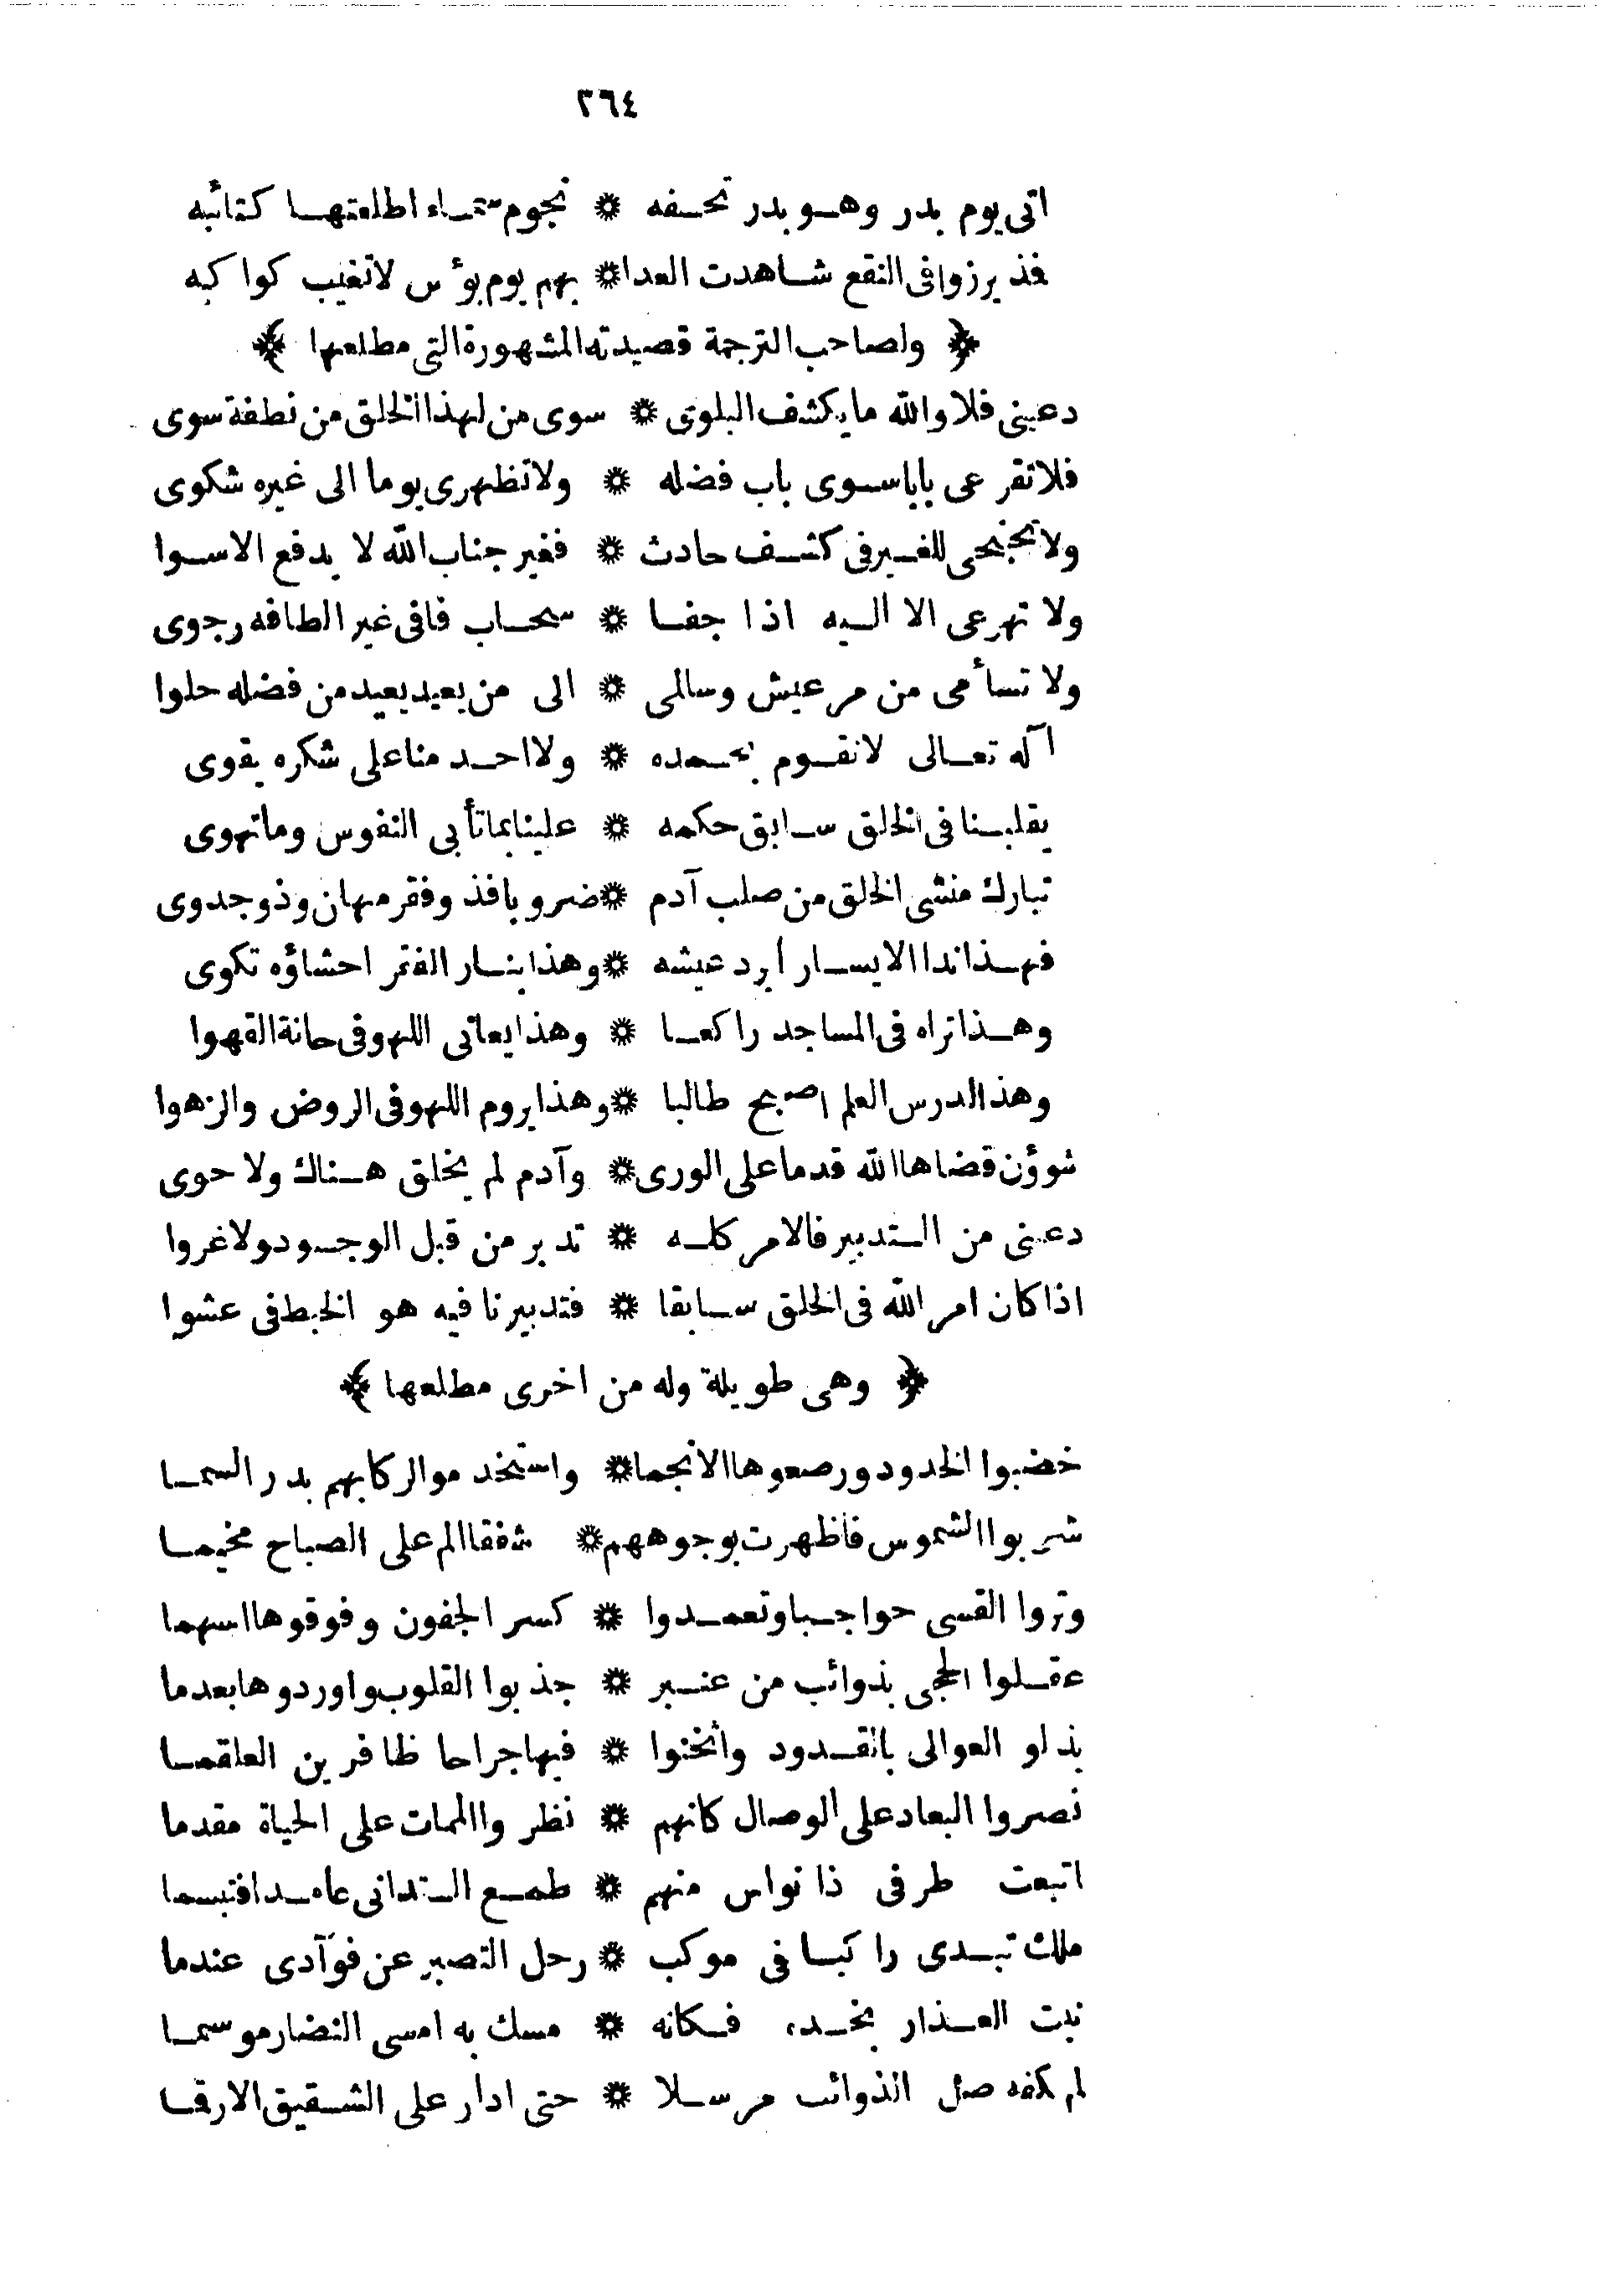 ٢٦٤
اتى يوم بدر وهو بدر تحفه * نجوم سماء اطلعتها كتائبه
فذ برزوا فى النقع شاهدت العدا * بهم يوم بؤس لا تغيب كواكبه
﴿ ولصاحب الترجمة قصيدته المشهورة التى مطلعها ﴾
دعينى فلا والله ما يكشف البلوى * سوى من لهذا الخلق من نطفة سوى
فلا تقرعى بابا سوى باب فضله * ولا تظهرى يوما الى غيره شكوى
ولا تجنحى للغير فى كشف حادث * فغير جناب الله لا يدفع الاسوا
ولا تهرعى الا اليه اذا جفا * سحاب فافى غير الطافه رجوى
ولا تسأمى من مر عيش وسالمى * الى من يعيد بعيد من فضله حلوا
آله تعالى لا نقوم بحمده * ولا احد منا على شكره يقوى
يقلبنا فى الخلق سابق حكمه * علينا بما تأبى النفوس وما تهوى
تبارك منشى الخلق من صلب آدم * ضروبا فذ وفقر مهان وذو جدوى
فهذا ندا الايسار أبرد عيشه * وهذا بنار الفقر احشاؤه تكوى
وهذا تراه فى المساجد راكعا * وهذا يعانى اللهو فى حانة القهوا
وهذا لدرس العلم اصبح طالبا * وهذا يروم اللهو فى الروض والزهوا
شوؤن قضاها الله قدما على الورى * وآدم لم يخلق هناك ولا حوى
دعنى من التدبير فالامر كله * تدبر من قبل الوجود ولا غروا
اذا كان امر الله فى الخلق سابقا * فتدبيرنا فيه هو الخبط فى عشوا
﴿ وهى طويلة وله من اخرى مطلعها ﴾
خضبوا الخدود ورصعوها الانجما * واستخدموا لركابهم بدر السما
شربوا الشموس فاظهرت بوجوههم * شفقا الم على الصباح مخيما
وتروا القسى حواجبا وتعمدوا * كسر الجفون وفوقوها اسهما
عقلوا الحجى بذوائب من عنبر * جذبوا القلوب واوردوها بعدما
بذلو العوالى بالقدود واثخنوا * فيها جراحا ظافرين العلقما
نصروا البعاد على الوصال كانهم * نظروا الممات على الحياة مقدما
اتبعت طرفى ذا نواس منهم * طمع التدانى عامدا فتبسما
ملك تبدى راكبا فى موكب * رحل التصبر عن فؤآدى عندما
نبت العذار بخده فكانه * مسك به امسى النضار موسما
لم يكفه صل الذوائب مرسلا * حتى ادار على الشقيق الارقا